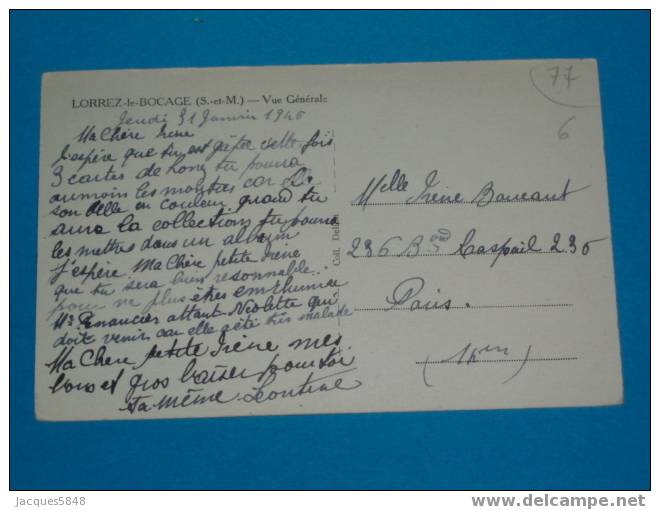 LORREZ-le-BOCAGE (S.-et-M.) — Vue Générale
77
6
Jeudi 31 Janvier 1946
Ma Chère Irène
J'espère que tu est gâter cette fois
3 cartes de tu poura
aumoin les montres car
son Belle en couleur quand tu
aura la collections tu poura
les mettres dans un album
J'espère Ma Chère petite Irène
que tu sera bien resonnable
pour ne plus êtres enrhumée
attant Nicolette qui
doit venir car elle été très malade
Ma Chère petite Irène mes
bons et gros baiser pour toi
ta même Léontine
Coll.
Melle Irène
236 Bard Raspail 236
Paris.
Jacques5848
delcampe.net